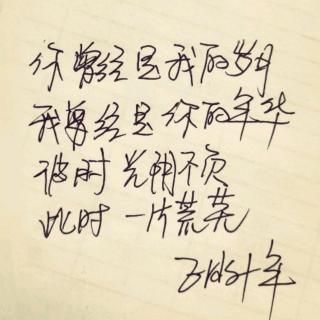 你曾经是我的岁月
我曾经是你的年华
彼时光阴不负
此时一片荒芜
十年